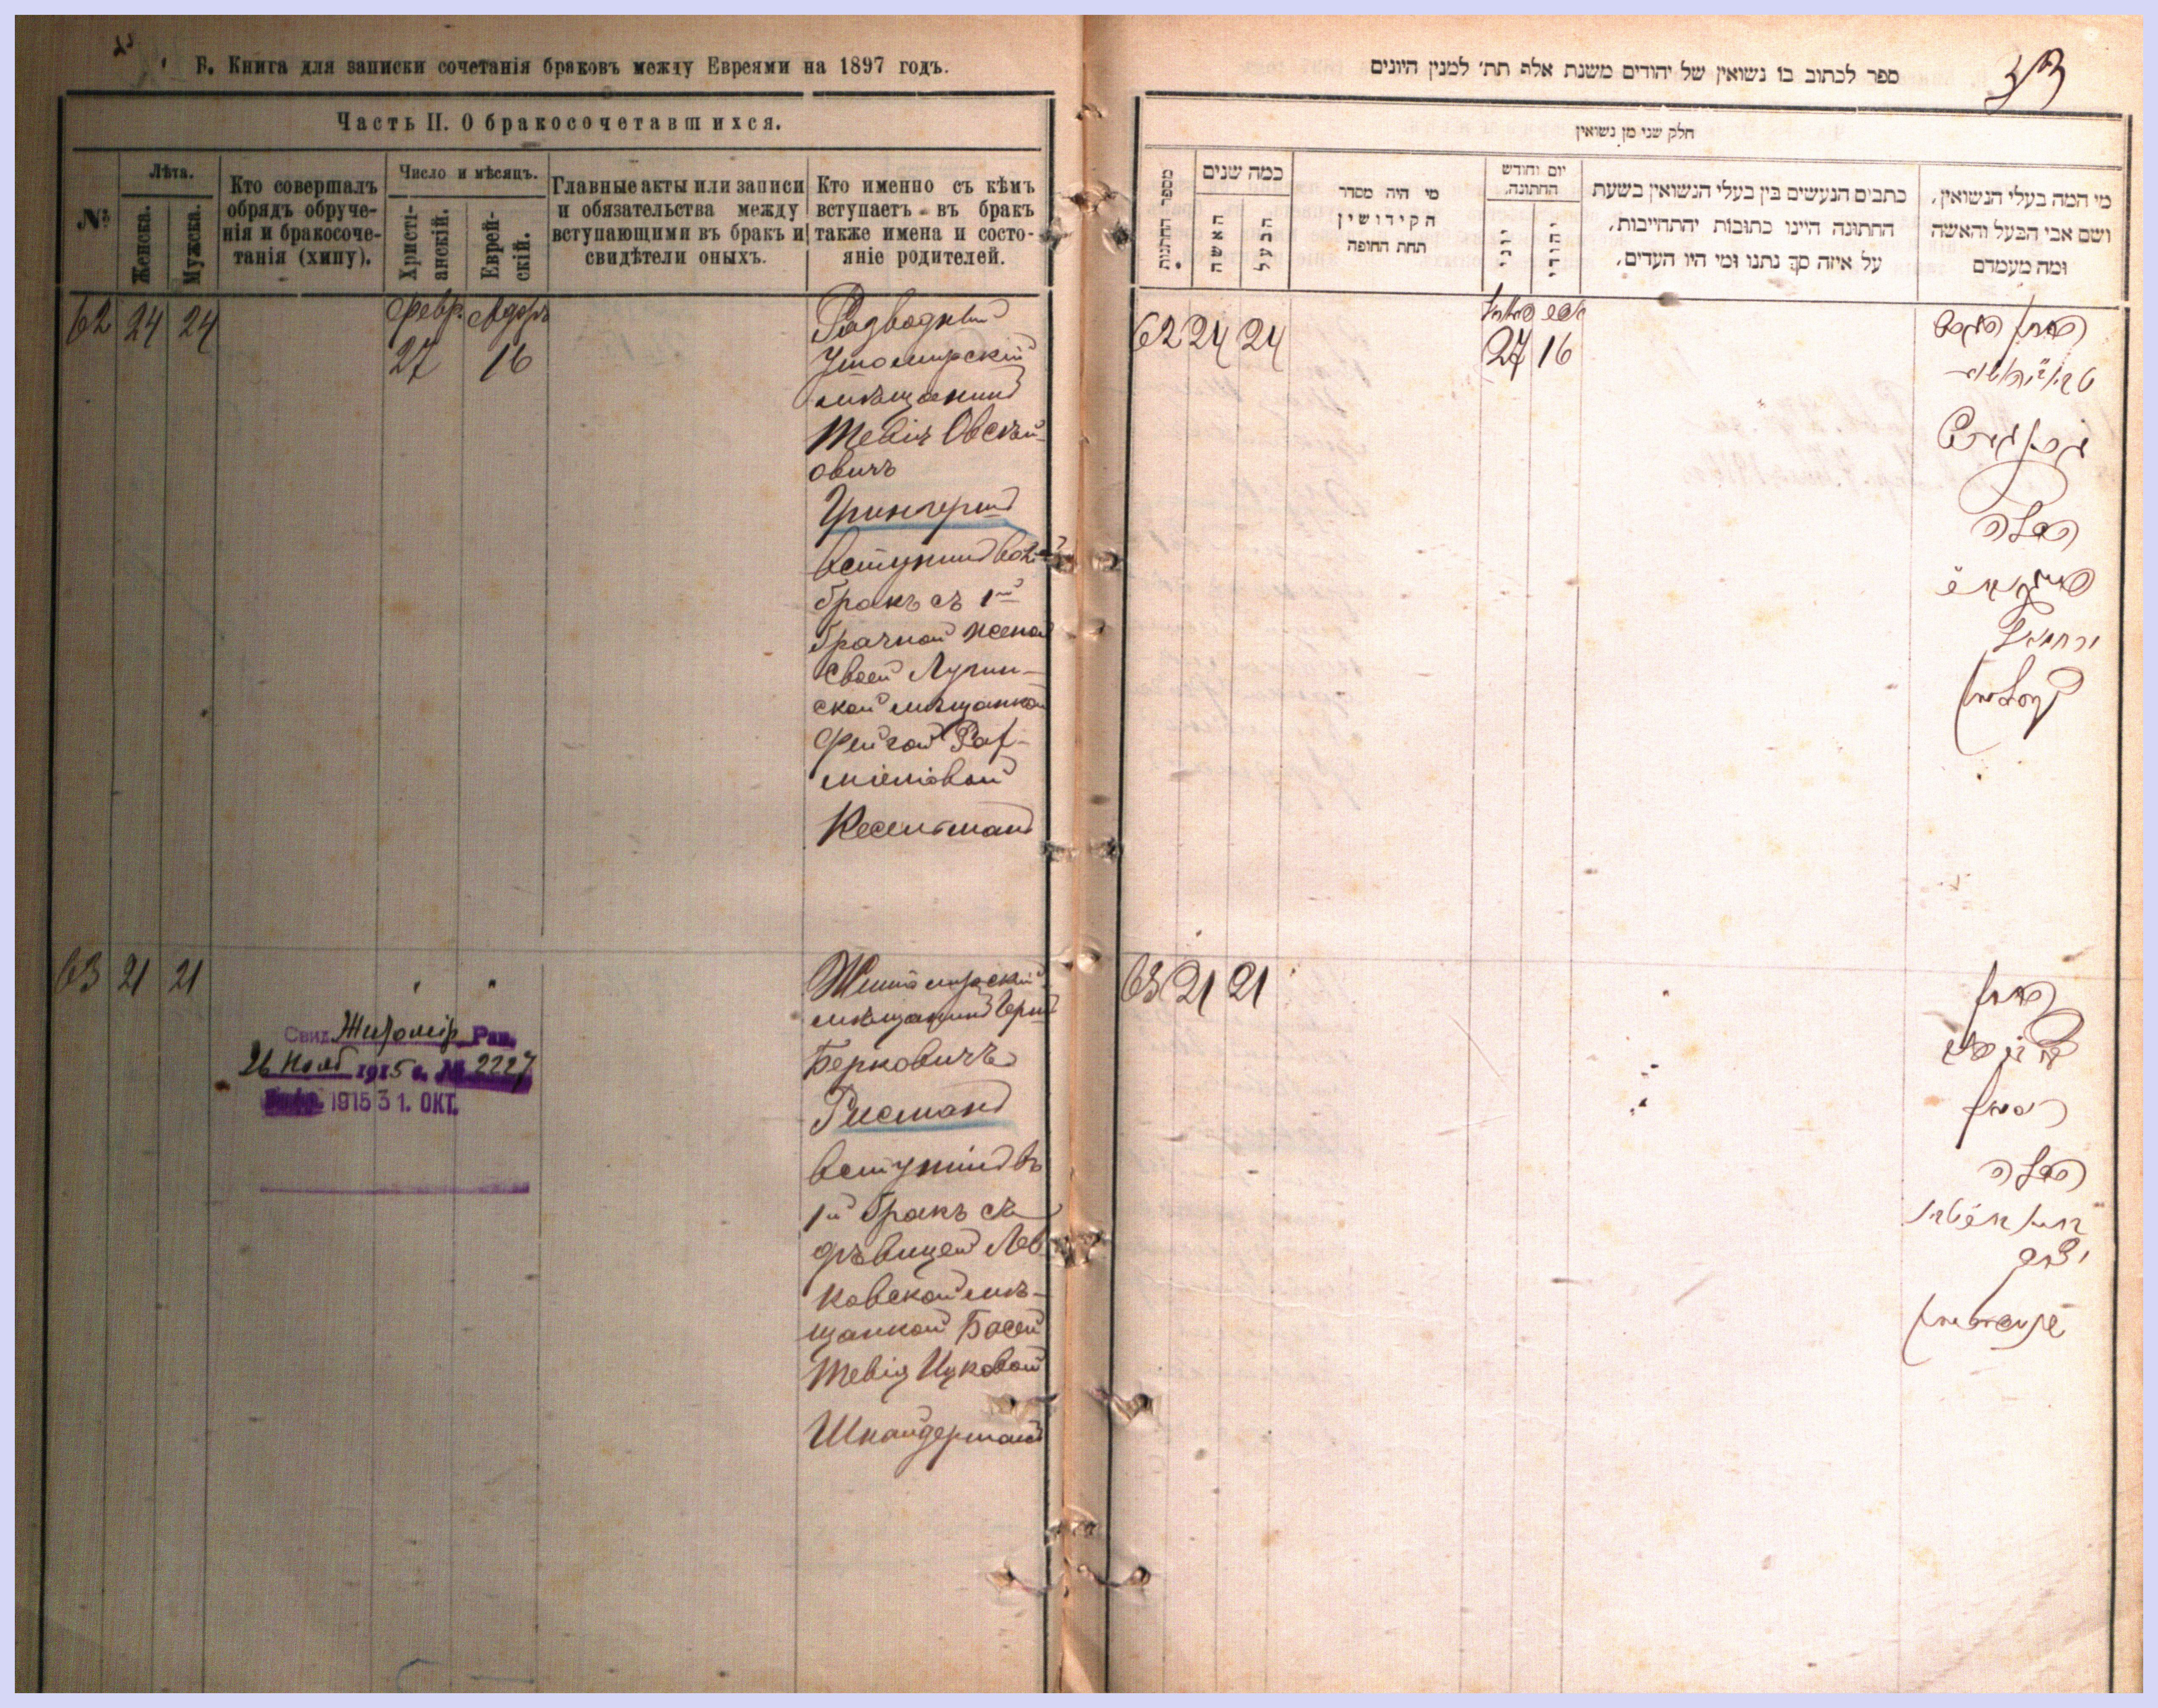 Б. Книга для записки сочетанія браковъ между Евреями на 1897 годъ.
Часть II. О бракосочетавшихся.
№
Лѣта.
Женска.
Мужска.
Кто совершалъ
обрядъ обруче-
нія и бракосоче-
танія (хипу).
Число и мѣсяцъ.
Христі-
анскій.
Еврей-
скій.
Главные акты или записи
и обязательства между
вступающими въ бракъ и
свидѣтели оныхъ.
Кто именно съ кѣмъ
вступаетъ въ бракъ
также имена и состо-
яніе родителей.
62 24 24
Февр. Адоръ
27 16
Разводный
Житомирскій
мѣщанинъ
Тевія
овичъ
вступилъ во 2й
бракъ съ 1й
брачной женой
своей Лугин-
ской мѣщанкой
Фейгой
Кесельманъ
63 21 21
Свид. Житомір. Рав.
26 1915 г. № 2227
1915 31. ОКТ.
Житомирскій
мѣщанинъ Герш
Берковичъ
Рисманъ
вступилъ въ
1й бракъ съ
дѣвицей Лев
ковской мѣ-
щанкой Басей
Тевія Ицковой
Шнайдерманъ
ספר לכתוב בו נשואין של יהודים משנת אלף תת׳ למנין היונים
חלק שני מן נשואין
מספר החתונות
כמה שנים
האשה
הבעל
מי היה מסדר
הקידושין
תחת החופה
יום וחודש
החתונה.
יוני
יהודי
כתבים הנעשים בין בעלי הנשואין בשעת
החתונה היינו כתובות יהתחייבות,
על איזה סך נתנו ומי היו העדים,
מי המה בעלי הנשואין,
ושם אבי הבעל והאשה
ומה מעמדם
62 24 24
27 16
הכלה
ירחמיאל
קעסלמאן
63 21 21
ריסמאן
הכלה
יצחק
שניידערמאן